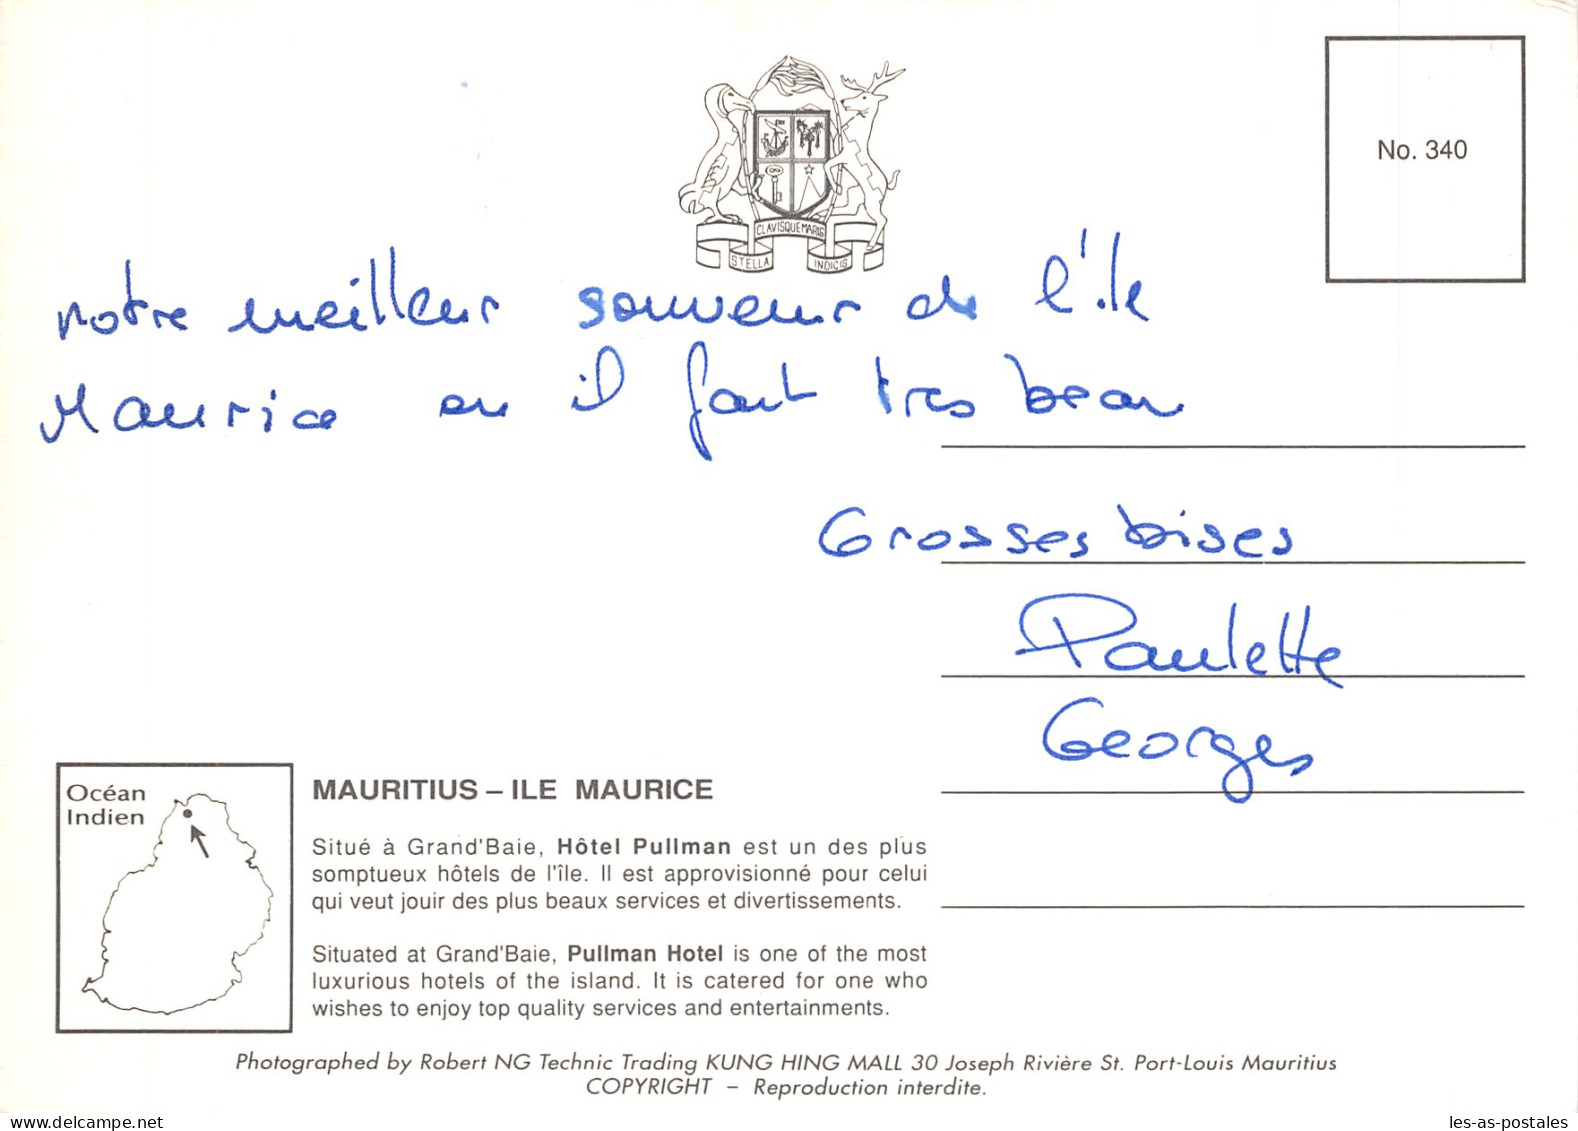 No. 340
CLAVISQUE MARIS
STELLA INDICIS
notre meilleur souvenir de l'île
Maurice ou il fait tres beau
Grosses bises
Paulette
Georges
Océan
Indien
MAURITIUS – ILE MAURICE
Situé à Grand'Baie, Hôtel Pullman est un des plus
somptueux hôtels de l'île. Il est approvisionné pour celui
qui veut jouir des plus beaux services et divertissements.
Situated at Grand'Baie, Pullman Hotel is one of the most
luxurious hotels of the island. It is catered for one who
wishes to enjoy top quality services and entertainments.
Photographed by Robert NG Technic Trading KUNG HING MALL 30 Joseph Rivière St. Port-Louis Mauritius
COPYRIGHT – Reproduction interdite.
delcampe.net
les-as-postales